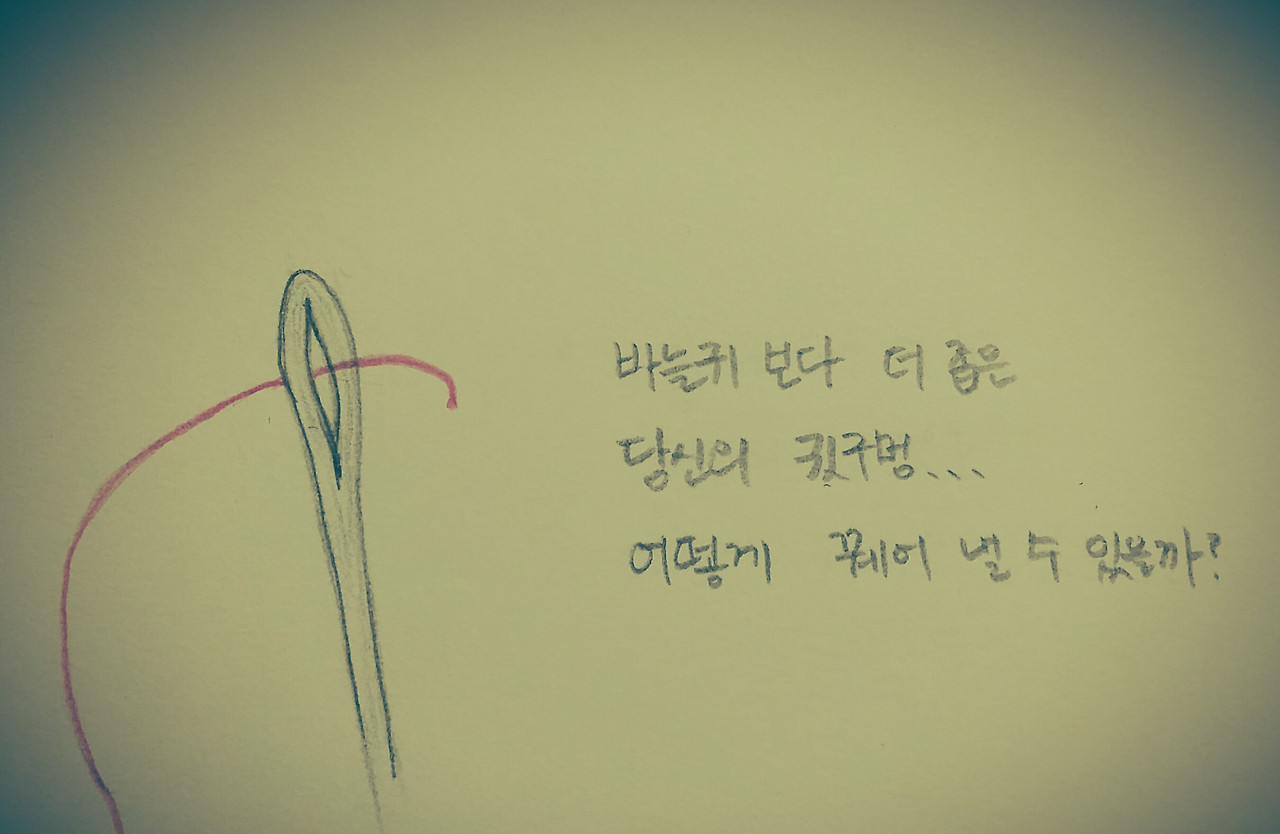 바늘귀 보다 더 좁은
당신의 귓구멍...
어떻게 꿰어 낼 수 있을까?